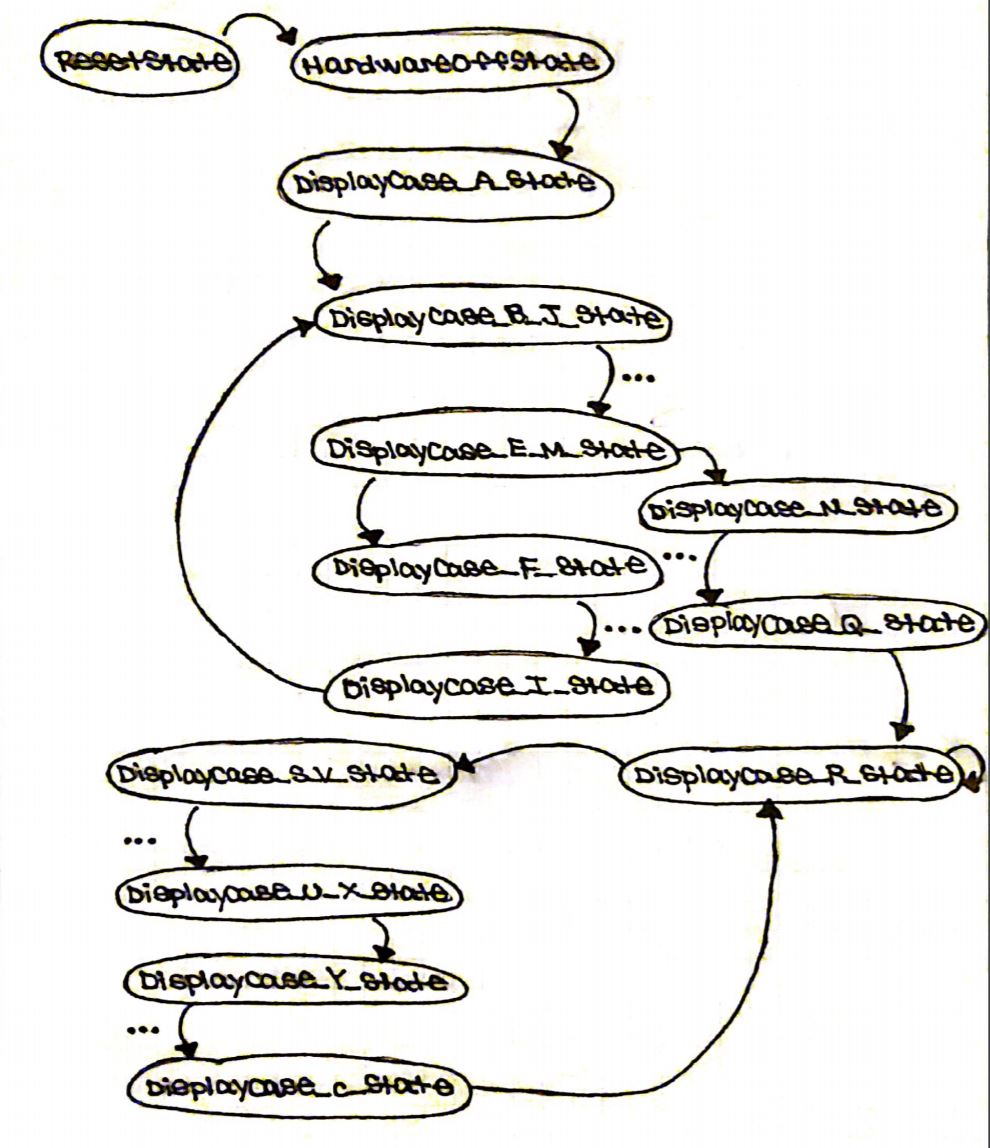 ResetState
HardwareOffState
DisplayCase_A_State
DisplayCase_B_J_State
...
DisplayCase_E_M_State
DisplayCase_N_State
DisplayCase_F_State
...
DisplayCase_Q_State
...
DisplayCase_I_State
DisplayCase_S_V_State
DisplayCase_R_State
...
DisplayCase_U_X_State
DisplayCase_Y_State
...
DisplayCase_c_State